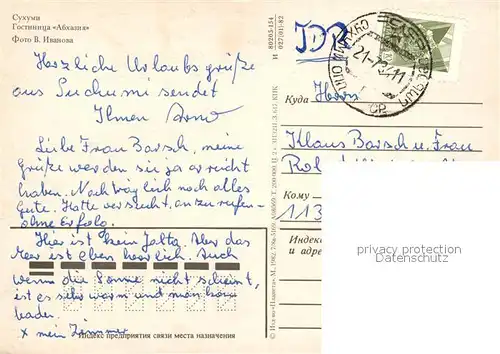 Сухуми
Гостиница «Абхазия»
Фото В. Иванова
Herzliche Urlaubsgrüße
aus Suchumi sendet
Ihnen Arno
Liebe Frau Barsch, meine
Grüße werden sie ja erreicht
haben. Nachträglich noch alles
Gute. Hatte versucht, anzurufen -
ohne Erfolg.
Hier ist kein Jalta. Aber das
Meer ist eben herrlich. Auch
wenn die Sonne nicht scheint,
ist es sehr warm und man kann
baden.
x mein Zimmer
Индекс предприятия связи места назначения
DDR
Куда Herrn
Klaus Barsch u. Frau
Кому
113
Индекс
и адрес
privacy protection